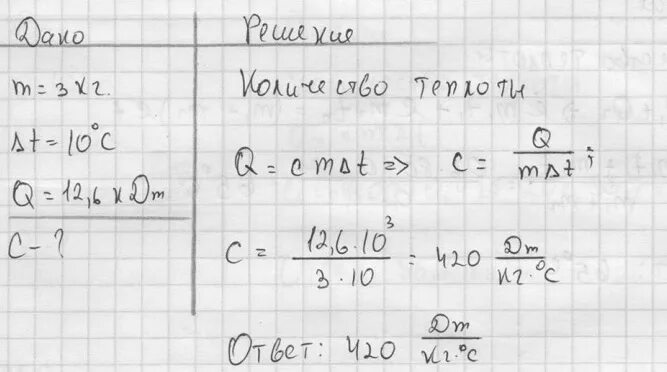 Дано
m = 3 кг.
Δt = 10°C
Q = 12,6 кДж
C - ?
Решение
Количество теплоты
Q = c m Δt => c = Q / m Δt ;
C = 12,6·10³ / 3·10 = 420 Дж / кг·°C
Ответ: 420 Дж / кг·°C